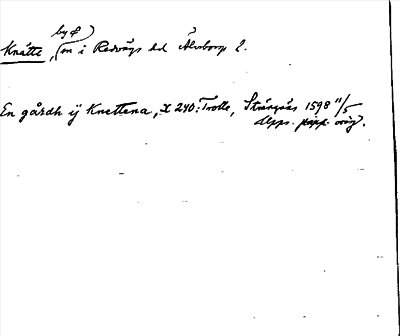 by
Knätte, (en i Redvägs hd Älvborg l.
En gårdh ij Knettena, X 240: Trolle, Strängnäs 1598 11/5
Upps. papp. orig.